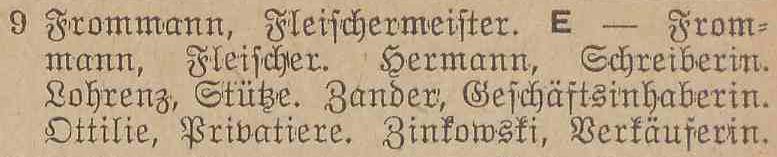 9 Frommann, Fleischermeister. E — From-
mann, Fleischer. Hermann, Schreiberin.
Lohrenz, Stütze. Zander, Geschäftsinhaberin.
Ottilie, Privatiere. Zinkowski, Verkäuferin.